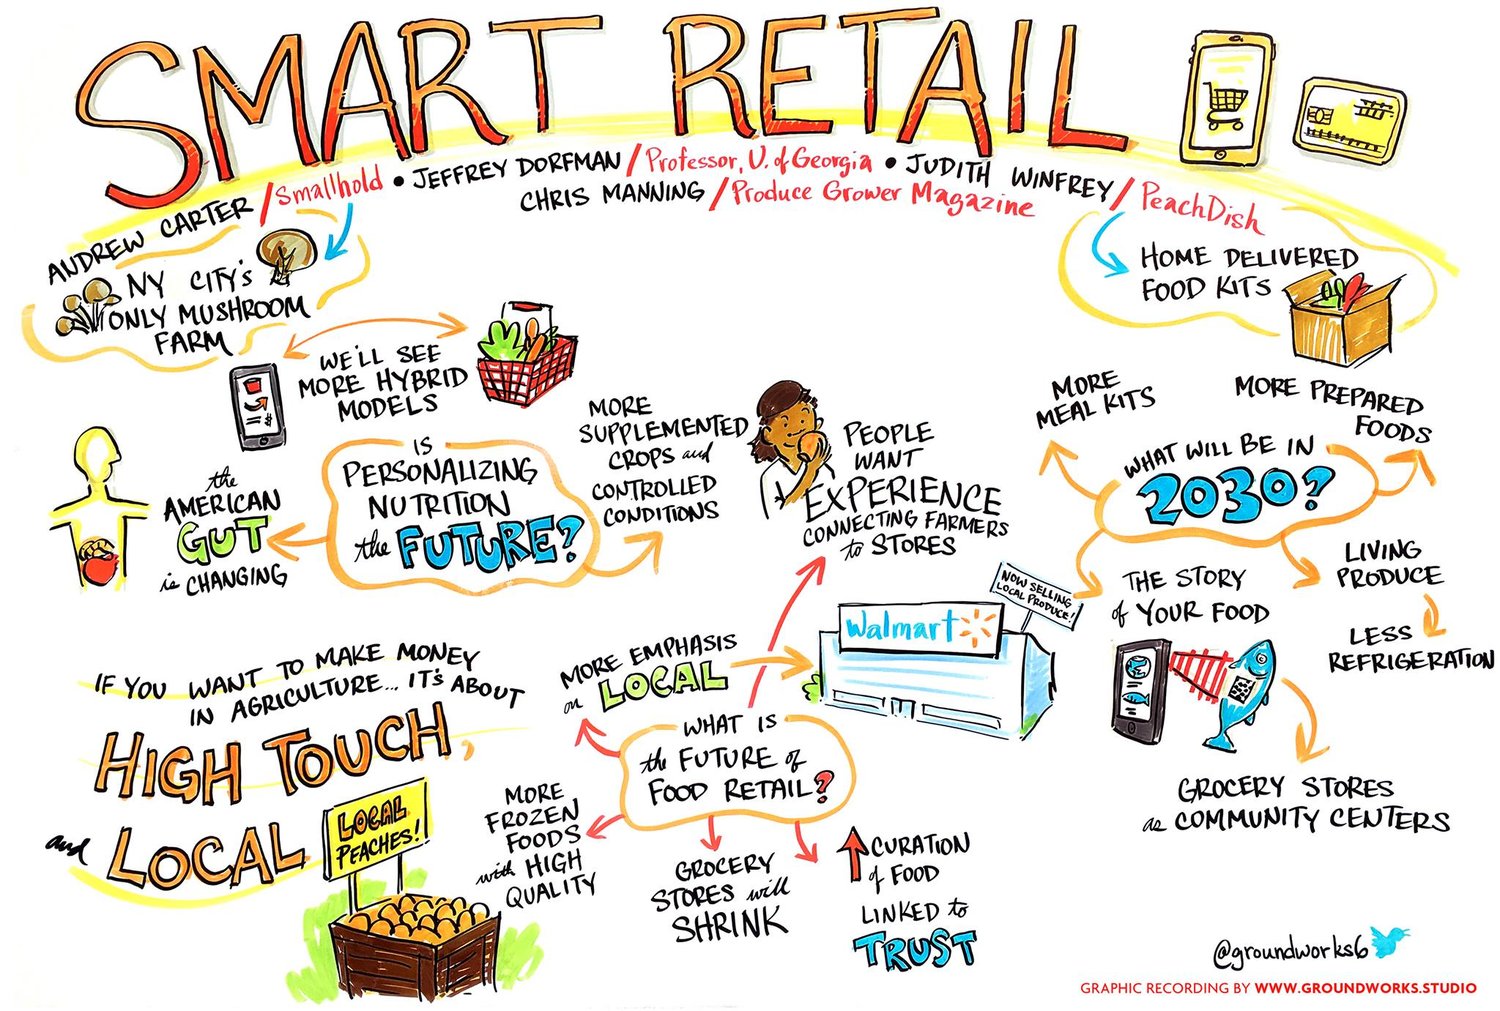 SMART RETAIL
ANDREW CARTER / Smallhold • JEFFREY DORFMAN / Professor, U. of Georgia • JUDITH WINFREY / PeachDish
CHRIS MANNING / Produce Grower Magazine
NY CITY'S
ONLY MUSHROOM
FARM
HOME DELIVERED
FOOD KITS
WE'LL SEE
MORE HYBRID
MODELS
$
IS
PERSONALIZING
NUTRITION
the FUTURE?
the
AMERICAN
GUT
is CHANGING
MORE
SUPPLEMENTED
CROPS and
CONTROLLED
CONDITIONS
PEOPLE
WANT
EXPERIENCE
CONNECTING FARMERS
to STORES
MORE
MEAL KITS
MORE PREPARED
FOODS
WHAT WILL BE IN
2030?
LIVING
PRODUCE
LESS
REFRIGERATION
THE STORY
of YOUR FOOD
GROCERY STORES
as COMMUNITY CENTERS
NOW SELLING
LOCAL PRODUCE!
Walmart
MORE EMPHASIS
on LOCAL
WHAT IS
the FUTURE of
FOOD RETAIL?
MORE
FROZEN
FOODS
with HIGH
QUALITY
GROCERY
STORES will
SHRINK
CURATION
of FOOD
LINKED to
TRUST
IF YOU WANT TO MAKE MONEY
IN AGRICULTURE... IT'S ABOUT
HIGH TOUCH,
and LOCAL
LOCAL
PEACHES!
@groundworks6
GRAPHIC RECORDING BY WWW.GROUNDWORKS.STUDIO